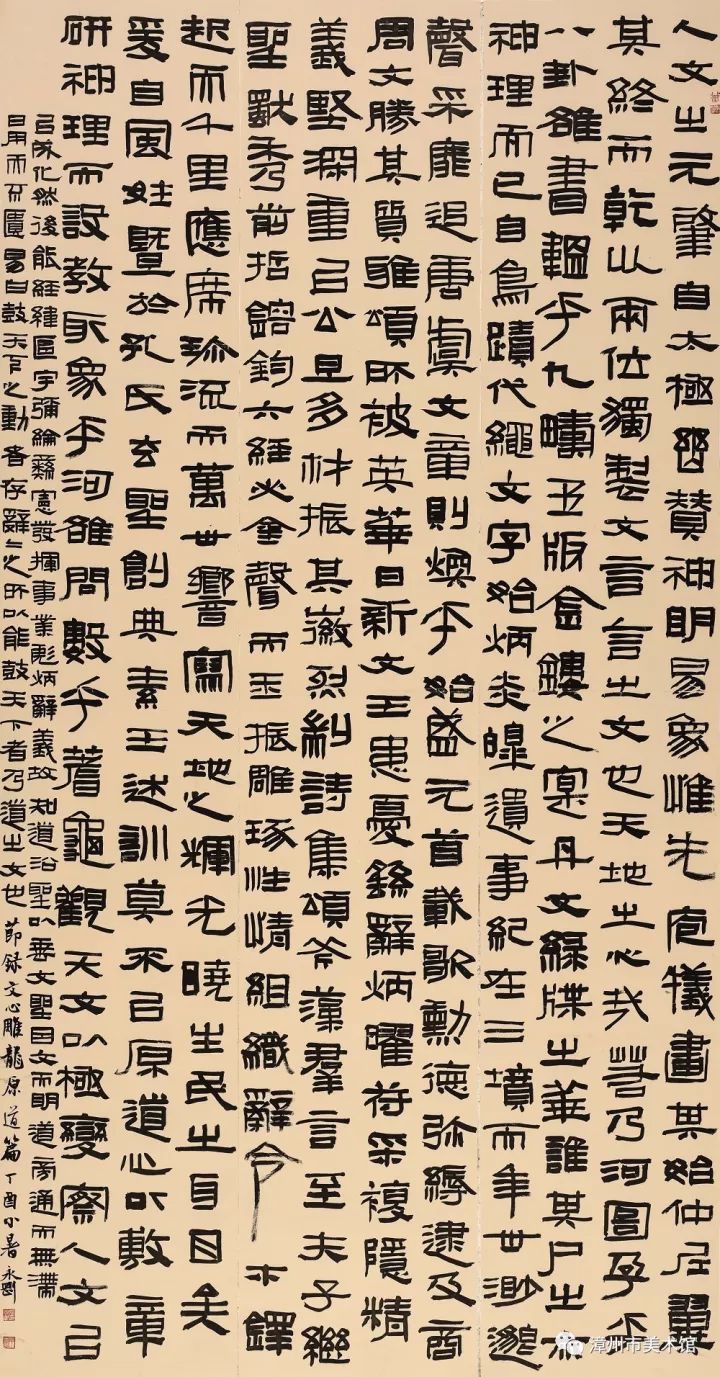 人文之元肇自太極幽贊神明易象惟先庖犧畫其始仲尼翼
其終而乾以兩位獨製文言言之文也天地之心哉若乃河圖孕乎
八卦雒書韞乎九疇玉版金鏤之寔丹文綠牒之華誰其尸之亦
神理而已自鳥蹟代繩文字始炳炎皞遺事紀在三墳而年世渺邈
聲采靡追唐虞文章則煥乎始盛元首載歌勳德弥縟逮及商
周文勝其質雅頌所被英華日新文王患憂繇辭炳曜符采複隱精
義堅深重以公旦多材振其徽烈糾詩集頌斧藻羣言至夫子繼
聖獸秀前哲鎔鈞六經必金聲而玉振雕琢性情組織辭令木鐸
起而千里應席珍流而萬世響寫天地之輝光曉生民之耳目矣
爰自風姓暨於孔氏玄聖創典素王述訓莫不以原道心以敷章
研神理而設教取象乎河雒問數乎蓍龜觀天文以極變察人文以
以成化然後能經緯區宇彌綸彝憲發揮事業彪炳辭義故知道沿聖以垂文聖因文而明道旁通而無滯
日用而不匱易曰鼓天下之動者存辭辭之所以能鼓天下者乃道之文也 節錄文心雕龍原道篇丁酉小暑永
漳州市美术馆